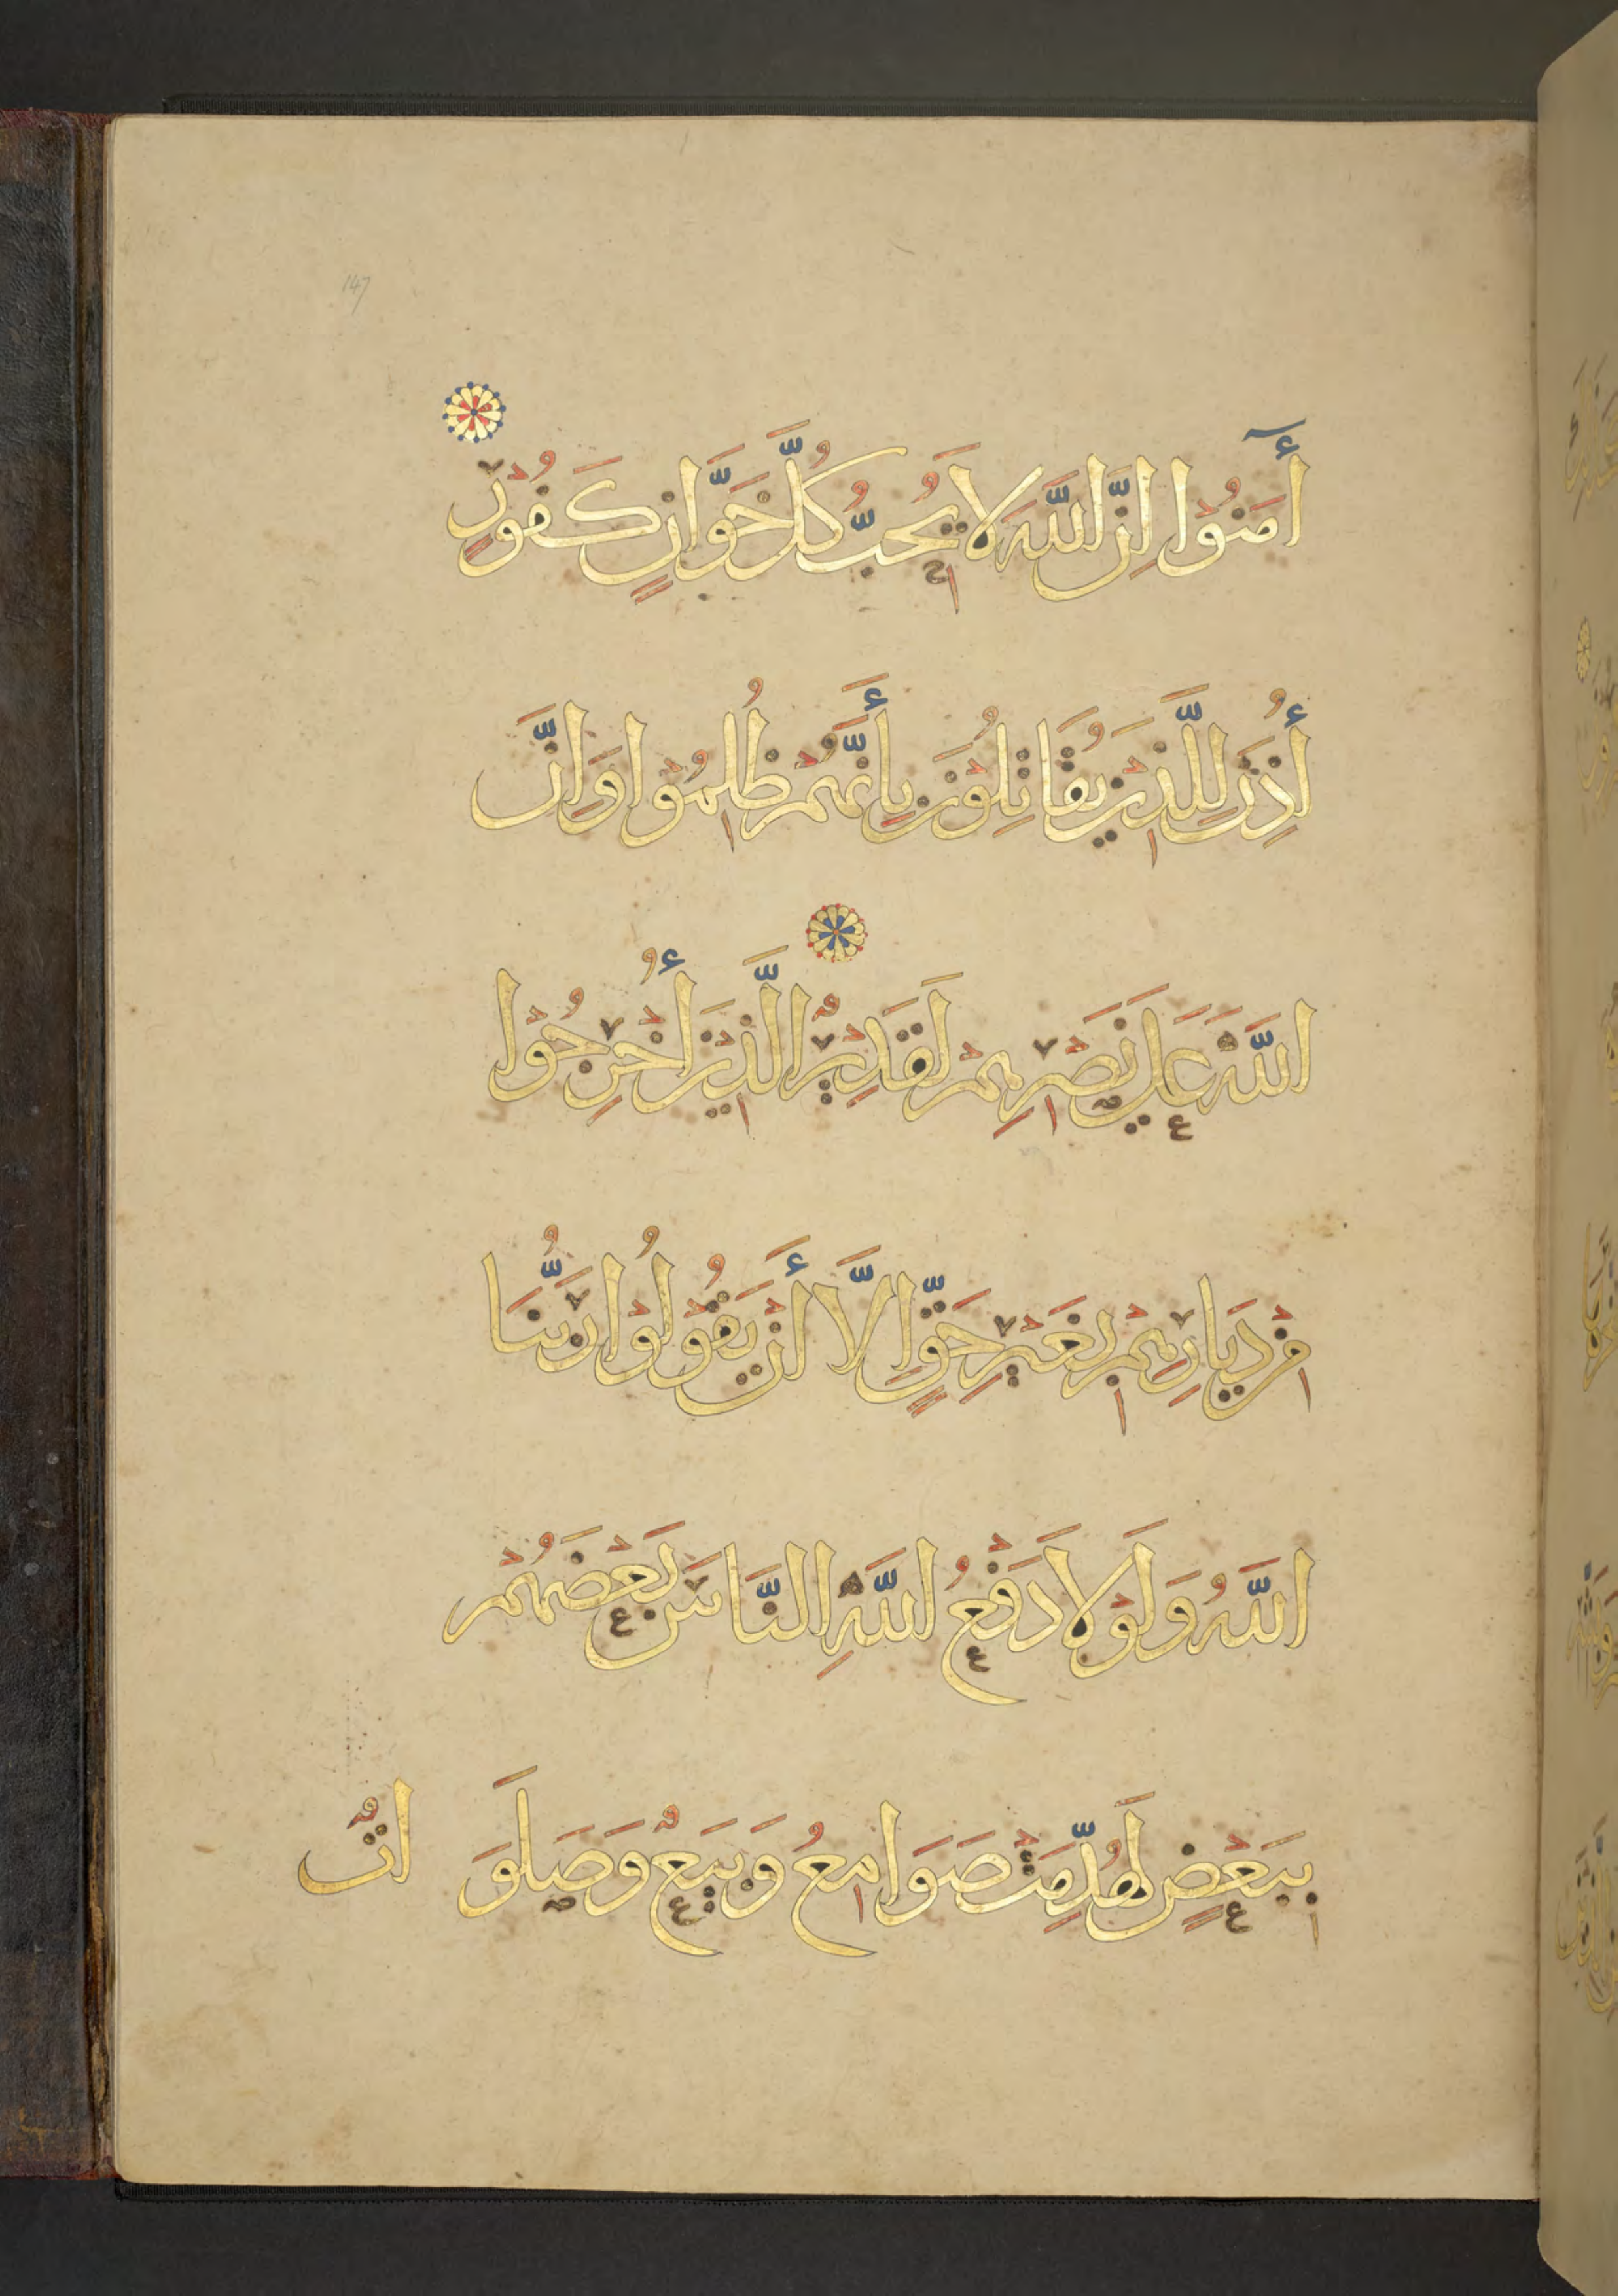 147
أٓمَنُوْا اِنَّ اللّٰهَ لَا يُحِبُّ كُلَّ خَوَّانٍ كَفُوْرٍ
أُذِنَ لِلَّذِيْنَ يُقَاتِلُوْنَ بِأَنَّهُمْ ظُلِمُوْا وَاِنَّ
اللّٰهَ عَلَى نَصْرِهِمْ لَقَدِيْرٌ الَّذِيْنَ أُخْرِجُوْا
مِنْ دِيَارِهِمْ بِغَيْرِ حَقٍّ اِلَّا أَنْ يَقُوْلُوْا رَبُّنَا
اللّٰهُ وَلَوْلَا دَفْعُ اللّٰهِ النَّاسَ بَعْضَهُمْ
بِبَعْضٍ لَهُدِّمَتْ صَوَامِعُ وَبِيَعٌ وَصَلَوَ اتٌ